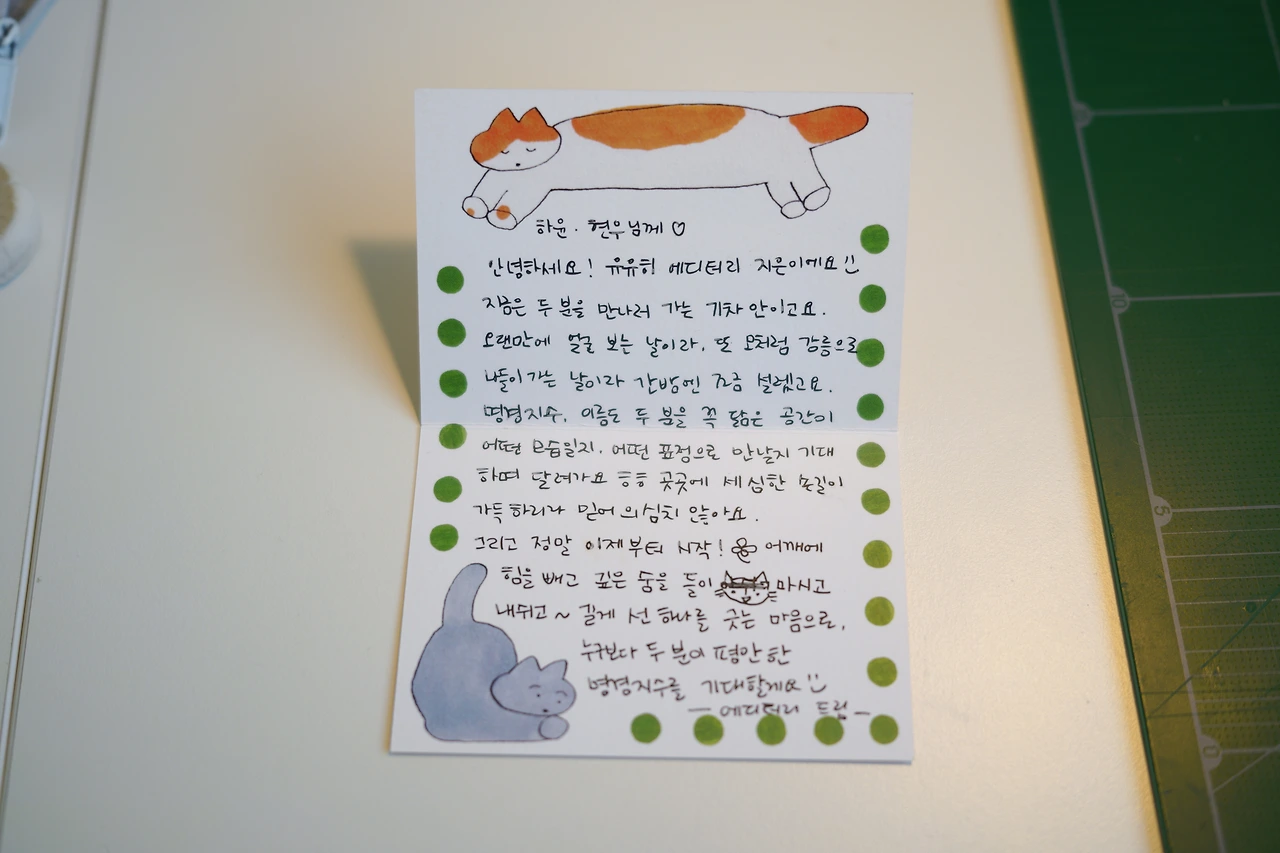 하윤·현우님께 ♡
안녕하세요! 유유히 에디터리 지은이에요
지금은 두 분을 만나러 가는 기차 안이고요.
오랜만에 얼굴 보는 날이라, 또 모처럼 강릉으로
나들이 가는 날이라 간밤엔 조금 설렜고요.
명경지수, 이름도 두 분을 쏙 닮은 공간이
어떤 모습일지, 어떤 표정으로 만날지 기대
하며 달려가요 ㅎㅎ 곳곳에 세심한 손길이
가득하리라 믿어 의심치 않아요.
그리고 정말 이제부터 시작! 어깨에
힘을 빼고 깊은 숨을 들이 마시고
내쉬고~ 길게 선 하나를 긋는 마음으로,
누구보다 두 분이 평안한
명경지수를 기대할게요
— 에디터리 드림 —
10
5
0